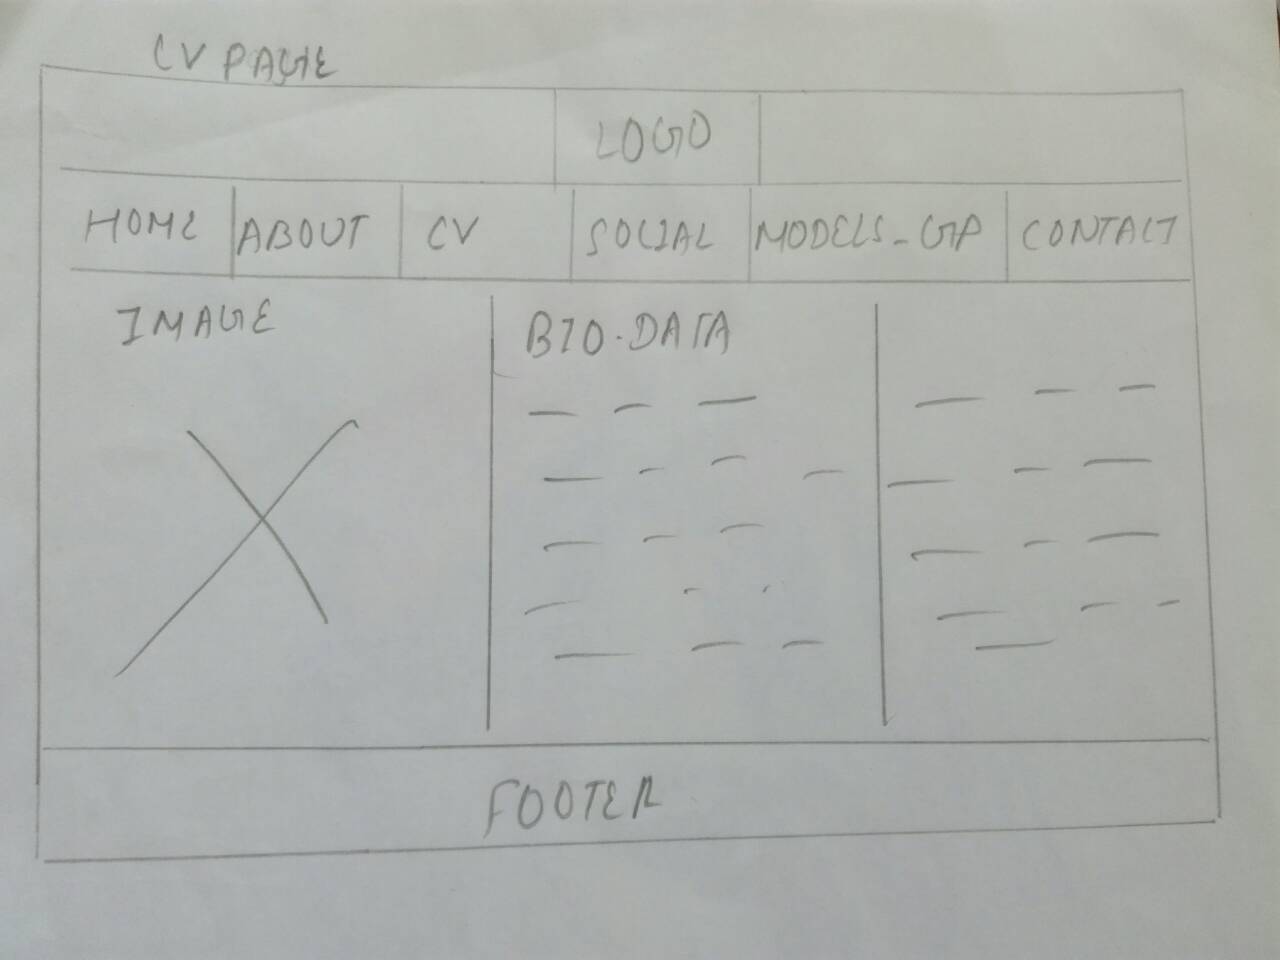 CV PAGE
LOGO
HOME ABOUT CV SOCIAL MODELS-GP CONTACT
IMAGE BIO.DATA
FOOTER